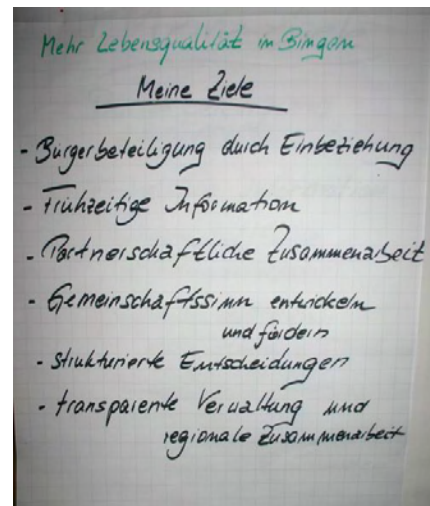 Mehr Lebensqualität in Bingen
Meine Ziele
- Bürgerbeteiligung durch Einbeziehung
- Frühzeitige Information
- Partnerschaftliche Zusammenarbeit
- Gemeinschaftssinn entwickeln
und fördern
- strukturierte Entscheidungen
- transparente Verwaltung und
regionale Zusammenarbeit